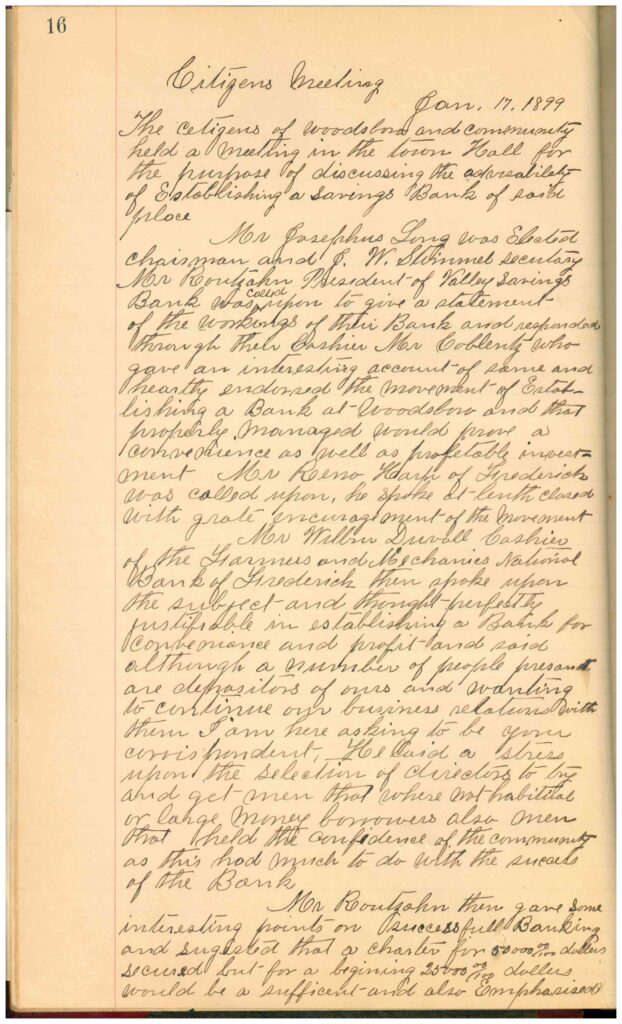 16
Citizens Meeting
Jan. 17, 1899
The cetigens of Woodsboro and community
held a Meeting in the town Hall for
the purpose of discussing the advisability
of Establishing a savings Bank of said
place
Mr Josephus Long was Elected
chairman and J. W. Stimmel secretary
Mr Routzahn President of Valley Savings
Bank was called upon to give a statement
of the workings of their Bank and responded
through their Cashier Mr Coblentz who
gave an interesting account of same and
heartly endorsed the movement of Estab-
lishing a Bank at Woodsboro and that
properly managed would prove a
convenience as well as profetable invest=
ment Mr Reno Harp of Frederick
was called upon, he spoke at lenth closed
with grate encouragement of the movement
Mr Wilbur Duvall Cashier
of the Farmers and Mechanics National
Bank of Frederick then spoke upon
the subject and thought perfectly
justifiable in establishing a Bank for
conveniance and profit and said
although a number of people present
are depositors of ours and wanting
to continue our business relations with
them I am here asking to be your
corrispondent, He laid a stress
upon the selection of directors to try
and get men that where not habitual
or large money borrowers also men
that held the confidence of the community
as this had much to do with the success
of the Bank
Mr Routzahn then gave some
interesting points on successfull Banking
and sugested that a charter for 50000 00/100 dollers
secured but for a begining 25000 00/100 dollers
would be a sufficent and also Emphasised